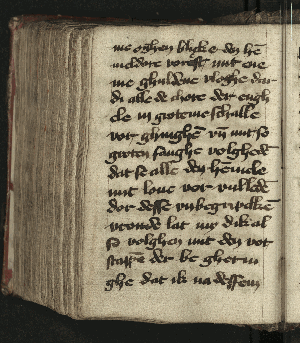 me oghen blyke dy hē
meldore vorest mit ene
me ghuldene vlesche dar
di alle de chore der engh
ele in groteme schalle
vor ghinghē vn̄ mit so
groten sanghe volghede
dat se alle dey hemele
mit loue vor vullede
dor desse vnbegripelkē
vronde lat my dik al
so volghen mit dey vot
stappē der be gheri
ghe dat ik na dessem